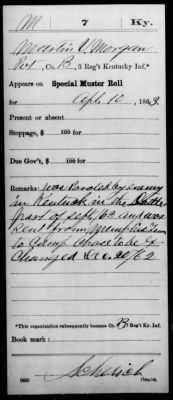 M 7 Ky.
Martin V. Morgan
Pvt, Co. B, 3 Reg't Kentucky Inf.*
Appears on Special Muster Roll
for Apl. 12, 1863.
Present or absent
Stoppage, $ 100 for
Due Gov't, $ 100 for
Remarks: was Paroled by Enemy
in Kentucky in the latter
part of Sept, 62 and was
sent from Memphis Tenn
to Camp Chase to be Ex
Changed Dec. 20/62
*This organization subsequently became Co. B, 7 Reg't Ky. Inf.
Book mark:
Copyist.